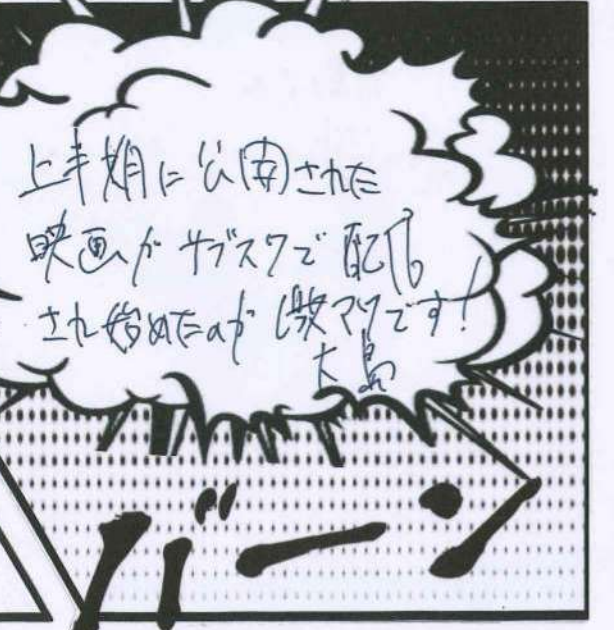 上半期に公開された
映画がサブスクで配信
され始めたのが激アツです!
大島
バーン